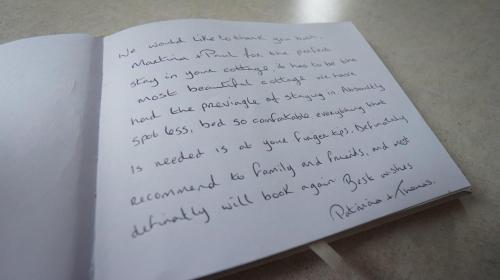 We would like to thank you both,
Martina + Paul for the perfect
stay in your cottage, it has to be the
most beautiful cottage we have
had the previagle of staying in. Absoutly
spot less, bed so comfortable everything that
is needed is at your fingertips. Definately
recommend to family and friends, and
definatly will book again Best wishes
Patricia + Thomas.